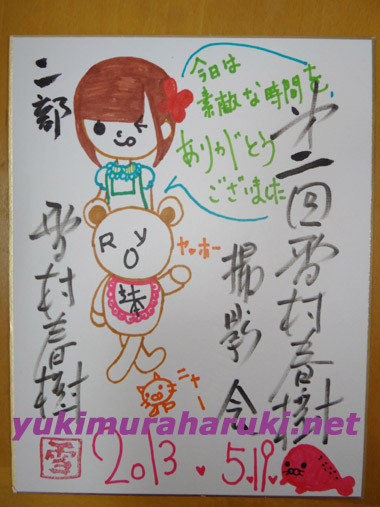 第二回雪村春樹
撮影会
今日は
素敵な時間を
ありがとう
ございました
二部
雪村春樹
R
O
Y
ヤッホー
ニャー
雪
2013.5.19.
yukimuraharuki.net